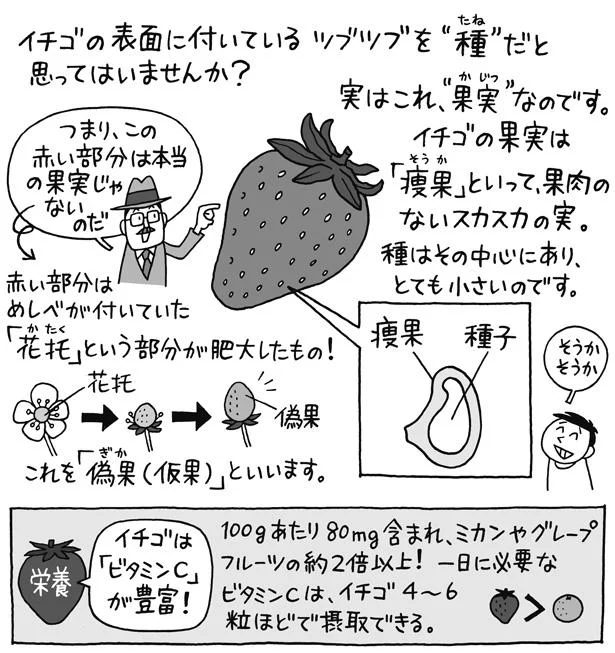 イチゴの表面に付いているツブツブを“種”だと
たね
思ってはいませんか?
実はこれ、“果実”なのです。
かじつ
つまり、この
赤い部分は本当
の果実じゃ
ないのだ
イチゴの果実は
「痩果」といって、果肉の
そうか
ないスカスカの実。
種はその中心にあり、
とても小さいのです。
赤い部分は
めしべが付いていた
「花托」という部分が肥大したもの!
かたく
花托
偽果
これを「偽果(仮果)」といいます。
ぎか
痩果
種子
そうか
そうか
栄養
イチゴは
「ビタミンC」
が豊富!
100gあたり80mg含まれ、ミカンやグレープ
フルーツの約2倍以上! 一日に必要な
ビタミンCは、イチゴ4〜6
粒ほどで摂取できる。
>